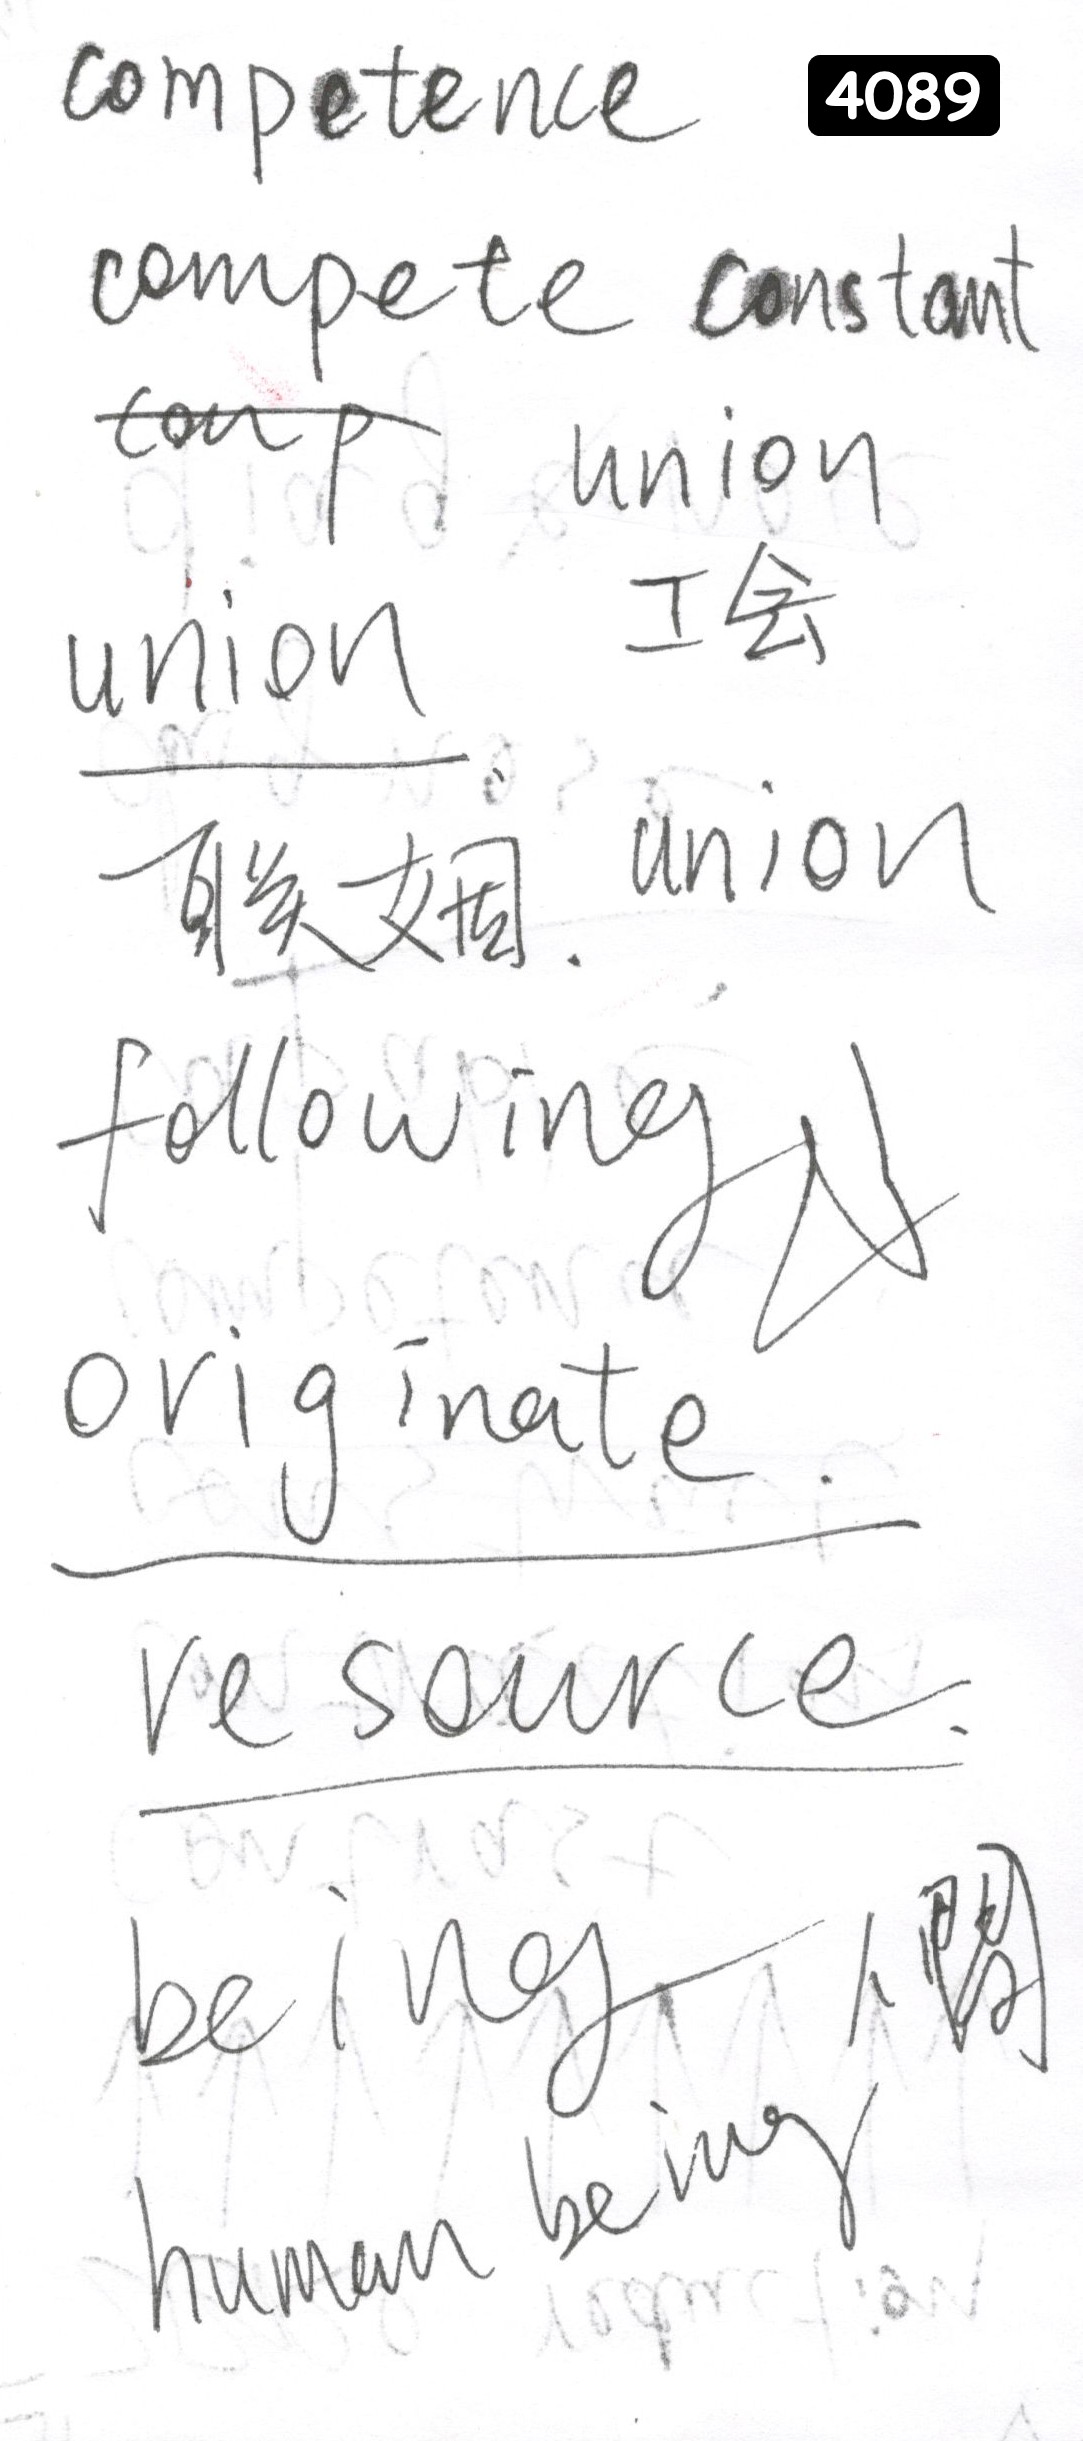 competence 4089
compete constant
comp union
工会
union
联姻. union
following
originate.
resource.
being 人間
human being